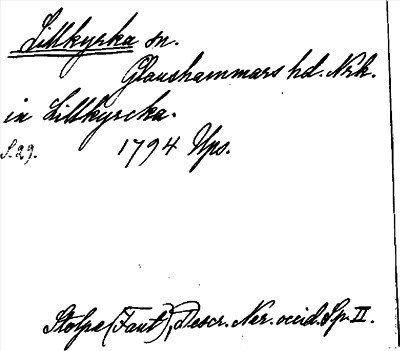 Lillkyrka sn.
Glanshammars hd. Nrk.
in Lillkyrcka.
S. 29. 1794 Ups.
Stolpe (Faut), Descr. Ner. occid. Sp. II.